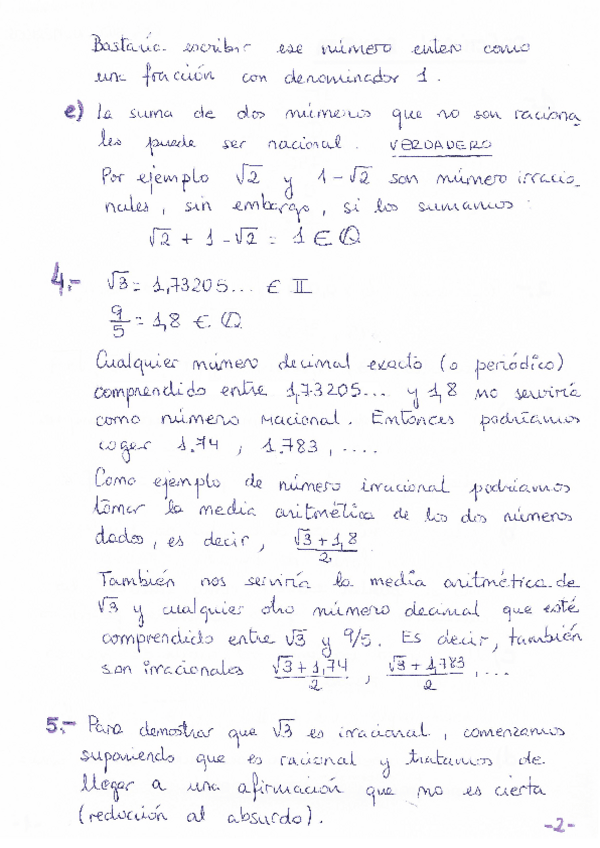 Bastaría escribir ese número entero como
una fracción con denominador 1.
e) La suma de dos números que no son raciona_
les puede ser racional. VERDADERO
Por ejemplo √2 y 1-√2 son número irracio_
nales, sin embargo, si los sumamos:
√2 + 1 - √2 = 1 ∈ ℚ
4.- √3 = 1,73205... ∈ 𝕀
9/5 = 1,8 ∈ ℚ
Cualquier número decimal exacto (o periódico)
comprendido entre 1,73205... y 1,8 nos serviría
como número racional. Entonces podríamos
coger 1.74 , 1.783 , ....
Como ejemplo de número irracional podríamos
tomar la media aritmética de los dos números
dados, es decir, (√3 + 1,8)/2
También nos serviría la media aritmética de
√3 y cualquier otro número decimal que esté
comprendido entre √3 y 9/5. Es decir, también
son irracionales (√3 + 1,74)/2 , (√3 + 1,783)/2 , ...
5.- Para demostrar que √3 es irracional, comenzamos
suponiendo que es racional y tratamos de
llegar a una afirmación que no es cierta
(reducción al absurdo).
-2-